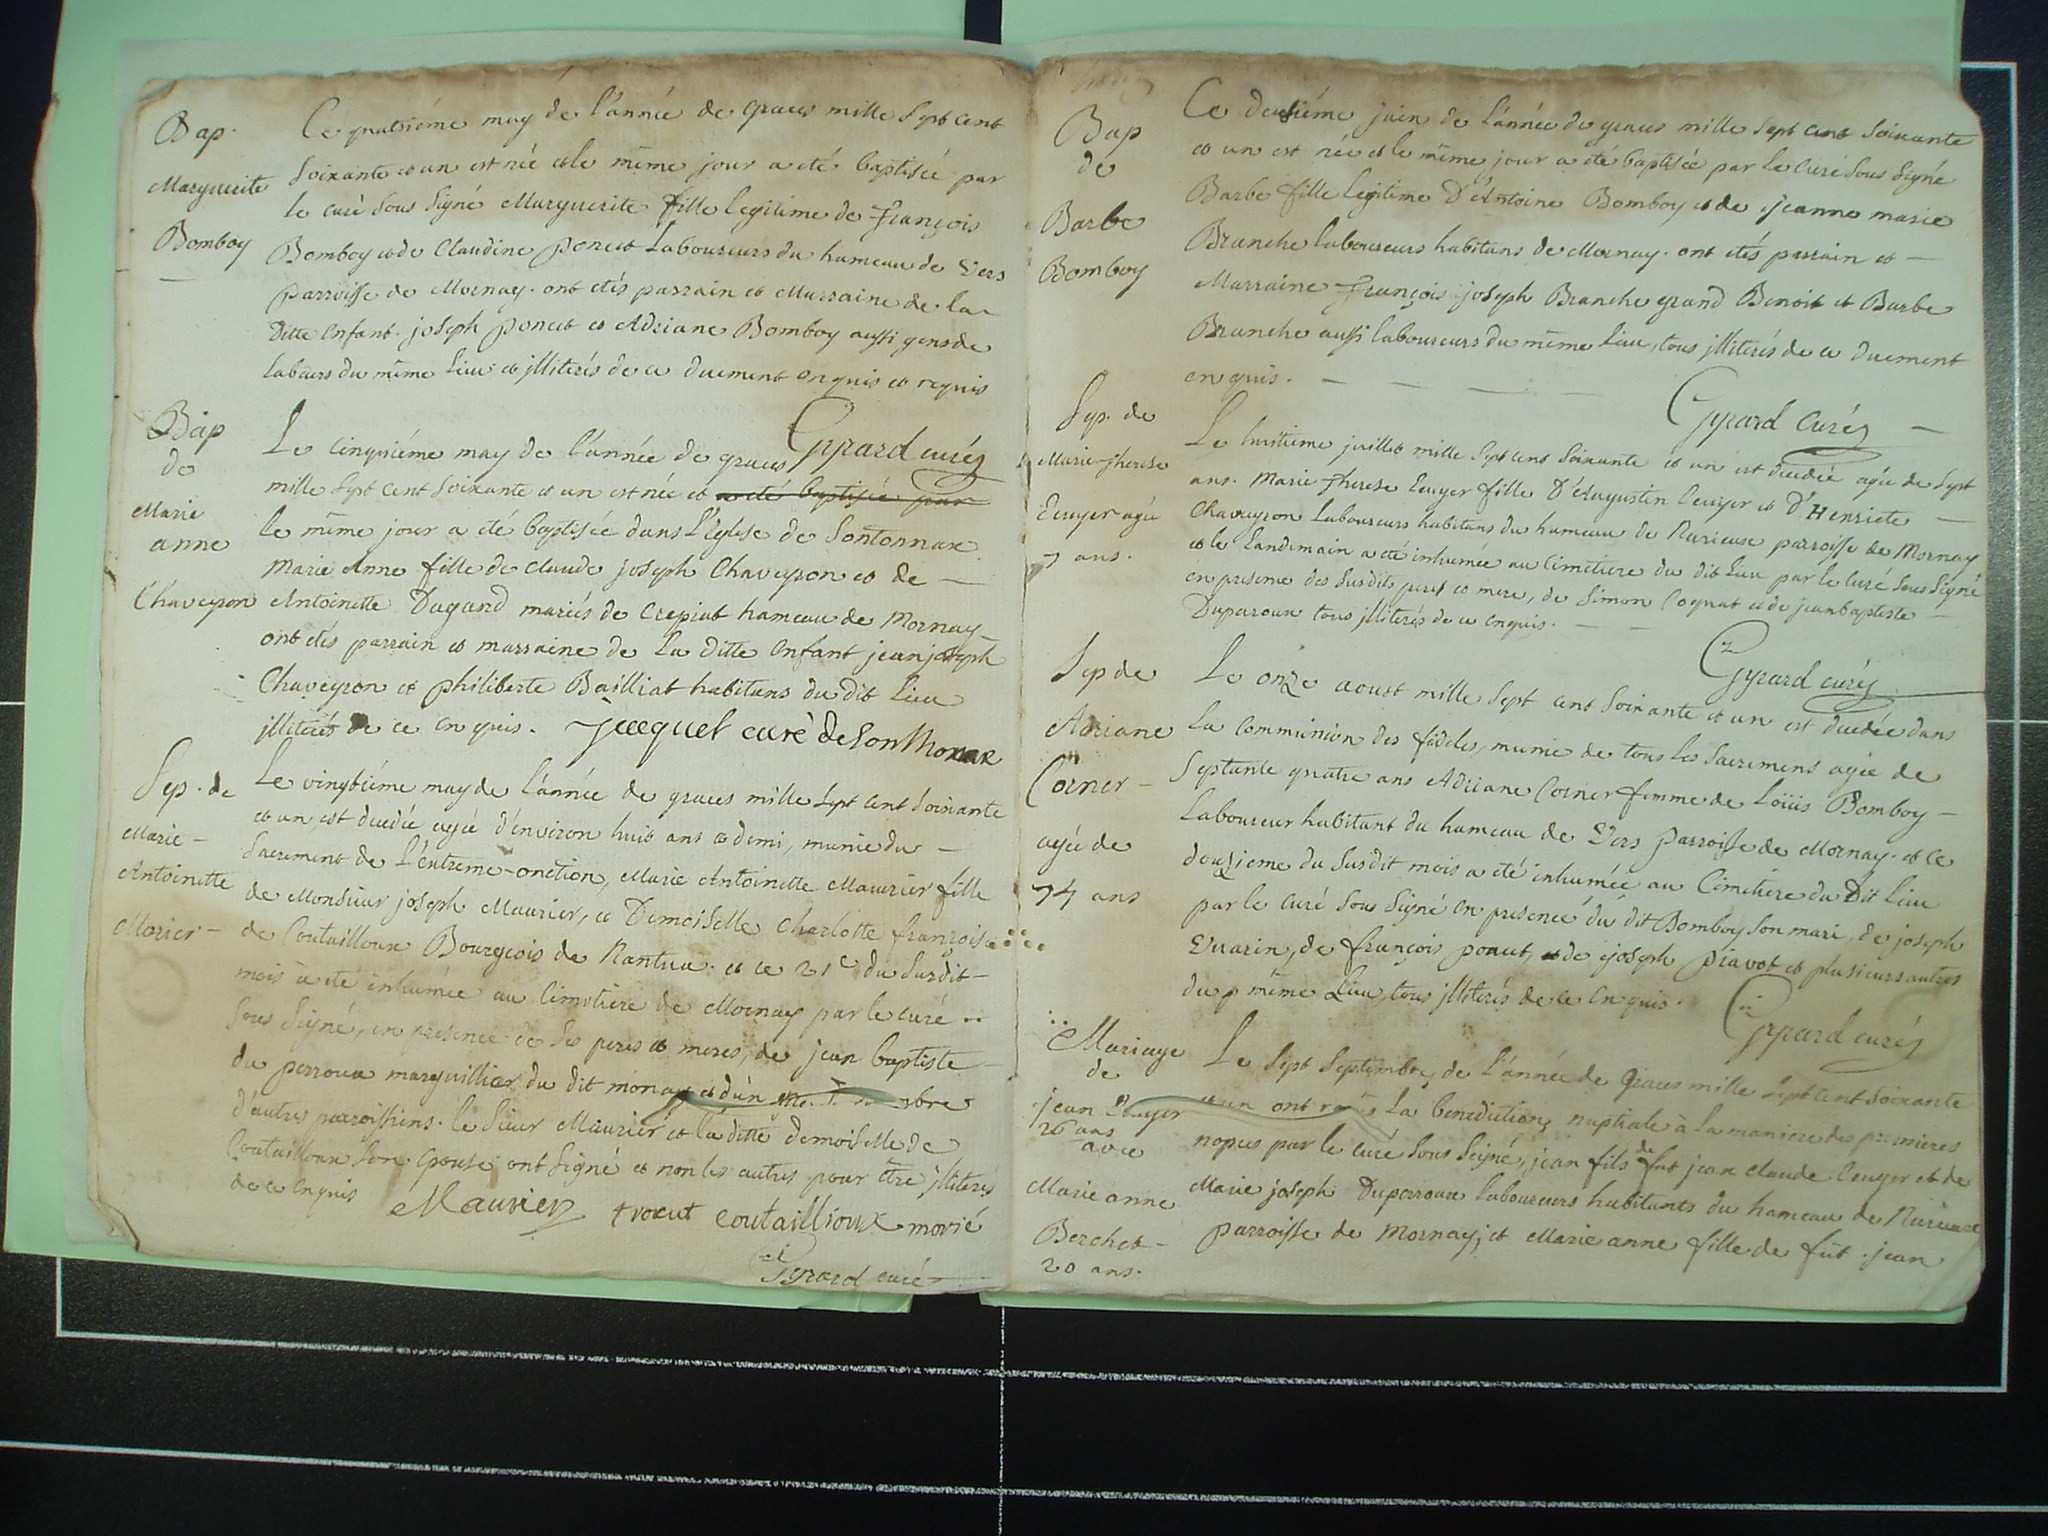 Bap.
Marguerite
Bomboy
Ce quatriéme may de l'année de graces mille sept cent
soixante et un est née et le même jour a eté baptisée par
le curé sous signé Marguerite fille legitime de françois
Bomboy et de Claudine poncet Laboureurs du hameau de Vers
parroisse de Mornay. ont etés parrain et Marraine de la
ditte enfant joseph poncet et Adriane Bomboy aussi gens de
labeurs du même Lieu et jlliterés de ce duement enquis et requis
Gyrard curéz
Bap
de
Marie
anne
Chaveyron
Le cinquiéme may de l'année de graces
mille sept cent soixante et un est née et a eté baptisée par
le même jour a eté baptisée dans l'Eglise de Sontonnax
Marie Anne fille de claude joseph Chaveyron et de
Antoinette Dagand mariés de Crepiat hameau de Mornay
ont etés parrain et marraine de la ditte enfant jean joseph
Chaveyron et philiberte Bailliat habitans du dit Lieu
jlliterés de ce enquis. Jacquet curé de Sonthonax
Sep. de
Marie
Antoinette
Morier
Le vingtiéme may de l'année de graces mille sept cent soixante
et un est decedée agée d'environ huit ans et demi, munie du
Sacrement de l'extreme-onction, Marie Antoinette Maurier fille
de Monsieur joseph Maurier, et Demoiselle Charlotte françoise
de Coutailloux Bourgeois de Nantua. et ce 21e du susdit
mois a eté inhumée au Cimetiere de Mornay par le curé
sous signé, en presence de ses peres et meres, de jean baptiste
du perroux marguillier du dit monay et d'un
d'autres parroissiens. le Sieur Maurier et la ditte demoiselle de
Coutailloux son epouse ont signé et non les autres pour être jlliterés
de ce enquis Maurier coutaillioux morié
Gyrard curé
Bap
de
Barbe
Bomboy
Ce deusiéme juin de l'année de graces mille sept cent soixante
et un est née et le même jour a eté baptisée par le curé sous signé
Barbe fille legitime D'Antoine Bomboy et de jeanne marie
Branche laboureurs habitans de Mornay. ont etés parrain et
Marraine françois joseph Branche grand Benoit et Barbe
Branche aussi laboureurs du même Lieu, tous jlliterés de ce duement
enquis.
Gyrard curéz
Sep. de
Marie Therese
Ecuyer agée
7 ans.
Le huitiéme juillet mille sept cent soixante et un est decedée agée de sept
ans. Marie Therese Ecuyer fille D'Augustin Ecuyer et D'Henriete
Chaveyron Laboureurs habitans du hameau de Nurieux parroisse de Mornay
et le Landemain a eté inhumée au Cimetiere du dit Lieu par le Curé sous signé
en presence des susdits peres et mere, de Simon Cognat et de jean baptiste
Duparoux tous jlliterés de ce enquis.
Gyrard curéz
Sep de
Adriane
Corner
agée de
74 ans
Le onze aoust mille sept cent soixante et un est decedée dans
la communion des fideles, munie de tous les Sacremens agée de
septante quatre ans Adriane Corner femme de Loüis Bomboy
Laboureur habitant du hameau de Vers parroisse de Mornay. et ce
douzieme du susdit mois a eté inhumée au Cimetiere du dit Lieu
par le curé sous signé en presence du dit Bomboy son mari, de joseph
Evarin, de françois poncet, et de joseph pravot et plusieurs autres
du même Lieu, tous jlliterés de ce enquis.
Gyrard curéz
Mariage
de
jean Ecuyer
26 ans
avec
Marie anne
Berchet
20 ans.
Le sept septembre de l'année de Graces mille sept cent soixante
et un ont la benediction nuptiale à la maniere des premieres
nopces par le curé sous signé, jean fils de fut jean claude Ecuyer et de
Marie joseph Duperroux laboureurs habitants du hameau de Nurieux
parroisse de Mornay; et Marie anne fille de fut jean